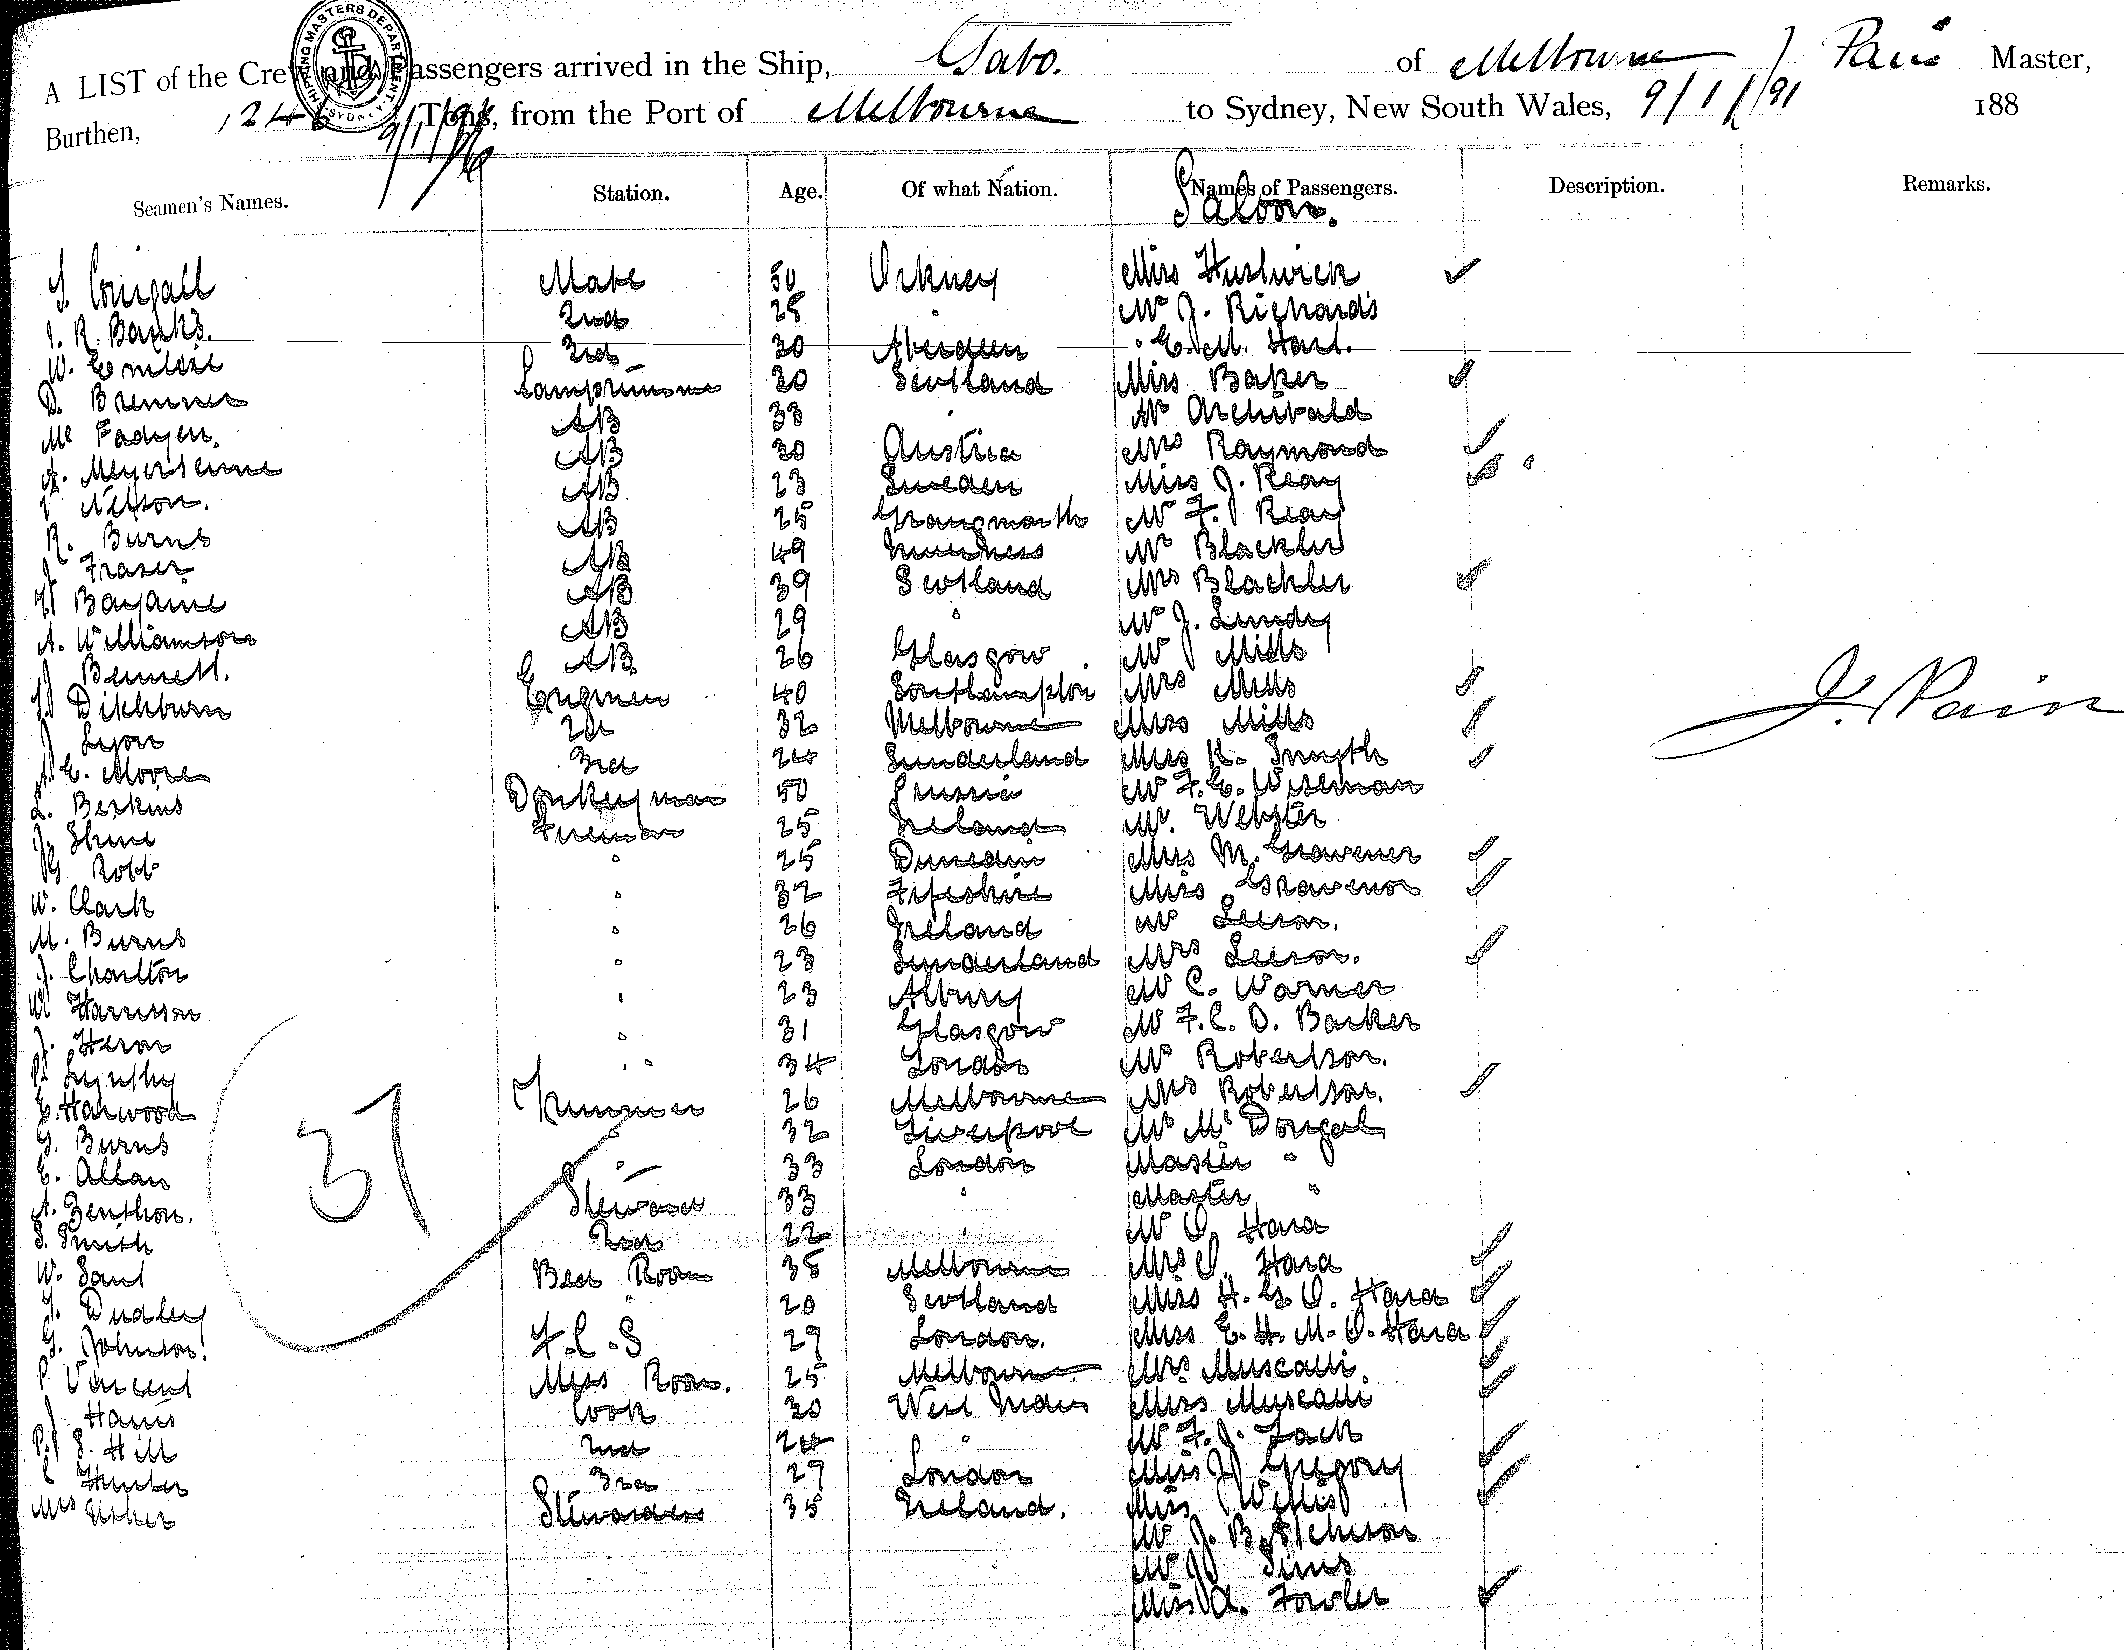 A LIST of the Crew and Passengers arrived in the Ship, Gabo. of Melbourne, J Pain Master,
Burthen, 1246 Tons, from the Port of Melbourne to Sydney, New South Wales, 9/1/91 188
SHIPPING MASTERS DEPARTMENT. SYDNEY
Seamen's Names. Station. Age. Of what Nation. Names of Passengers. Description. Remarks.
Saloon.
Mate 50 Orkney Miss
J. R. Banks. 2nd 25 " Mr J. Richards
W. 3rd 30 Aberdeen " E. M. Hart.
D. Bremner Lamptrimmer 30 Scotland Miss Baker
Mc Fadyen. AB 33 " Mr Archibald
AB 30 Austria Mrs Raymond
Nelson. AB 23 Sweden Miss J. Reay
R. Burns AB 25 Mr F. J Reay
J Fraser AB 49 Inverness Mr Blackler
AB 39 Scotland Mrs Blackler
A. Williamson AB 29 " Mr J. Lundy
Bennett. AB 26 Glasgow Mr J Mills
Dickburn Engineer 40 Southampton Mrs Mills
J Lyon 2nd 32 Melbourne Miss Mills
E. Moore 3rd 24 Sunderland Miss K. Smyth
L. Berkins Donkeyman 50 Prussia Mr F. E. Wiseman
J. Shine Fireman 25 Ireland Mr. Webster
Robb " 25 Dunedin Miss M. Gravener
W. Clark " 32 Fifeshire Miss Gravenor
M. Burns " 26 Ireland Mr Leeson.
J. Charlton " 23 Sunderland Mrs Leeson.
W Harrison " 23 Albury Mr C. Warner
J. Heron " 31 Glasgow Mr F. C. O. Barker
" " 34 London Mr Robertson.
E. Harwood Trimmer 26 Melbourne Mrs Robertson.
G. Burns " 32 Liverpool Mr Mc Dougal
E. Allan " 33 London Master "
A. Steward 33 " Master "
S. Smith 2nd 22 Mr O. Hara
W. Bed Room 35 Melbourne Mrs O. Hara
J. Dudley 20 Scotland Miss H. G. O. Hara
G. Johnson. F. C. S 29 London. Miss E. H. M. O. Hara
P Vincent Mess Room. 25 Melbourne Mrs
Harris Cook 30 West Indies Miss
S. Hill 2nd 24 " Mr F. J. Zach
Hunter 3rd 27 London Miss J Gregory
Mrs Stewardess 35 Ireland. Miss Willis
Mr J.
Mr J Sims
Miss A. Fowler
J. Pain
37